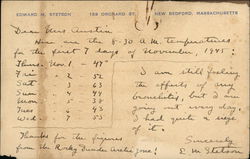 EDWARD H. STETSON 159 ORCHARD ST. NEW BEDFORD, MASSACHUSETTS
Dear Mrs Austin
Here are the 8-30 A.M. temperatures
for the first 7 days of November, 1945:
Thurs. Nov. 1 - 47°
Fri " 2 - 52
Sat " 3 - 63
Sun " 4 - 44
Mon " 5 - 38
Tues " 6 - 43
Wed " 7 - 53
I am still feeling
the effects of my
bronchitis, but I am
going out every day.
I had quite a siege
of it.
Thanks for the figures
from the Rocky Dundee
Sincerely
E H Stetson